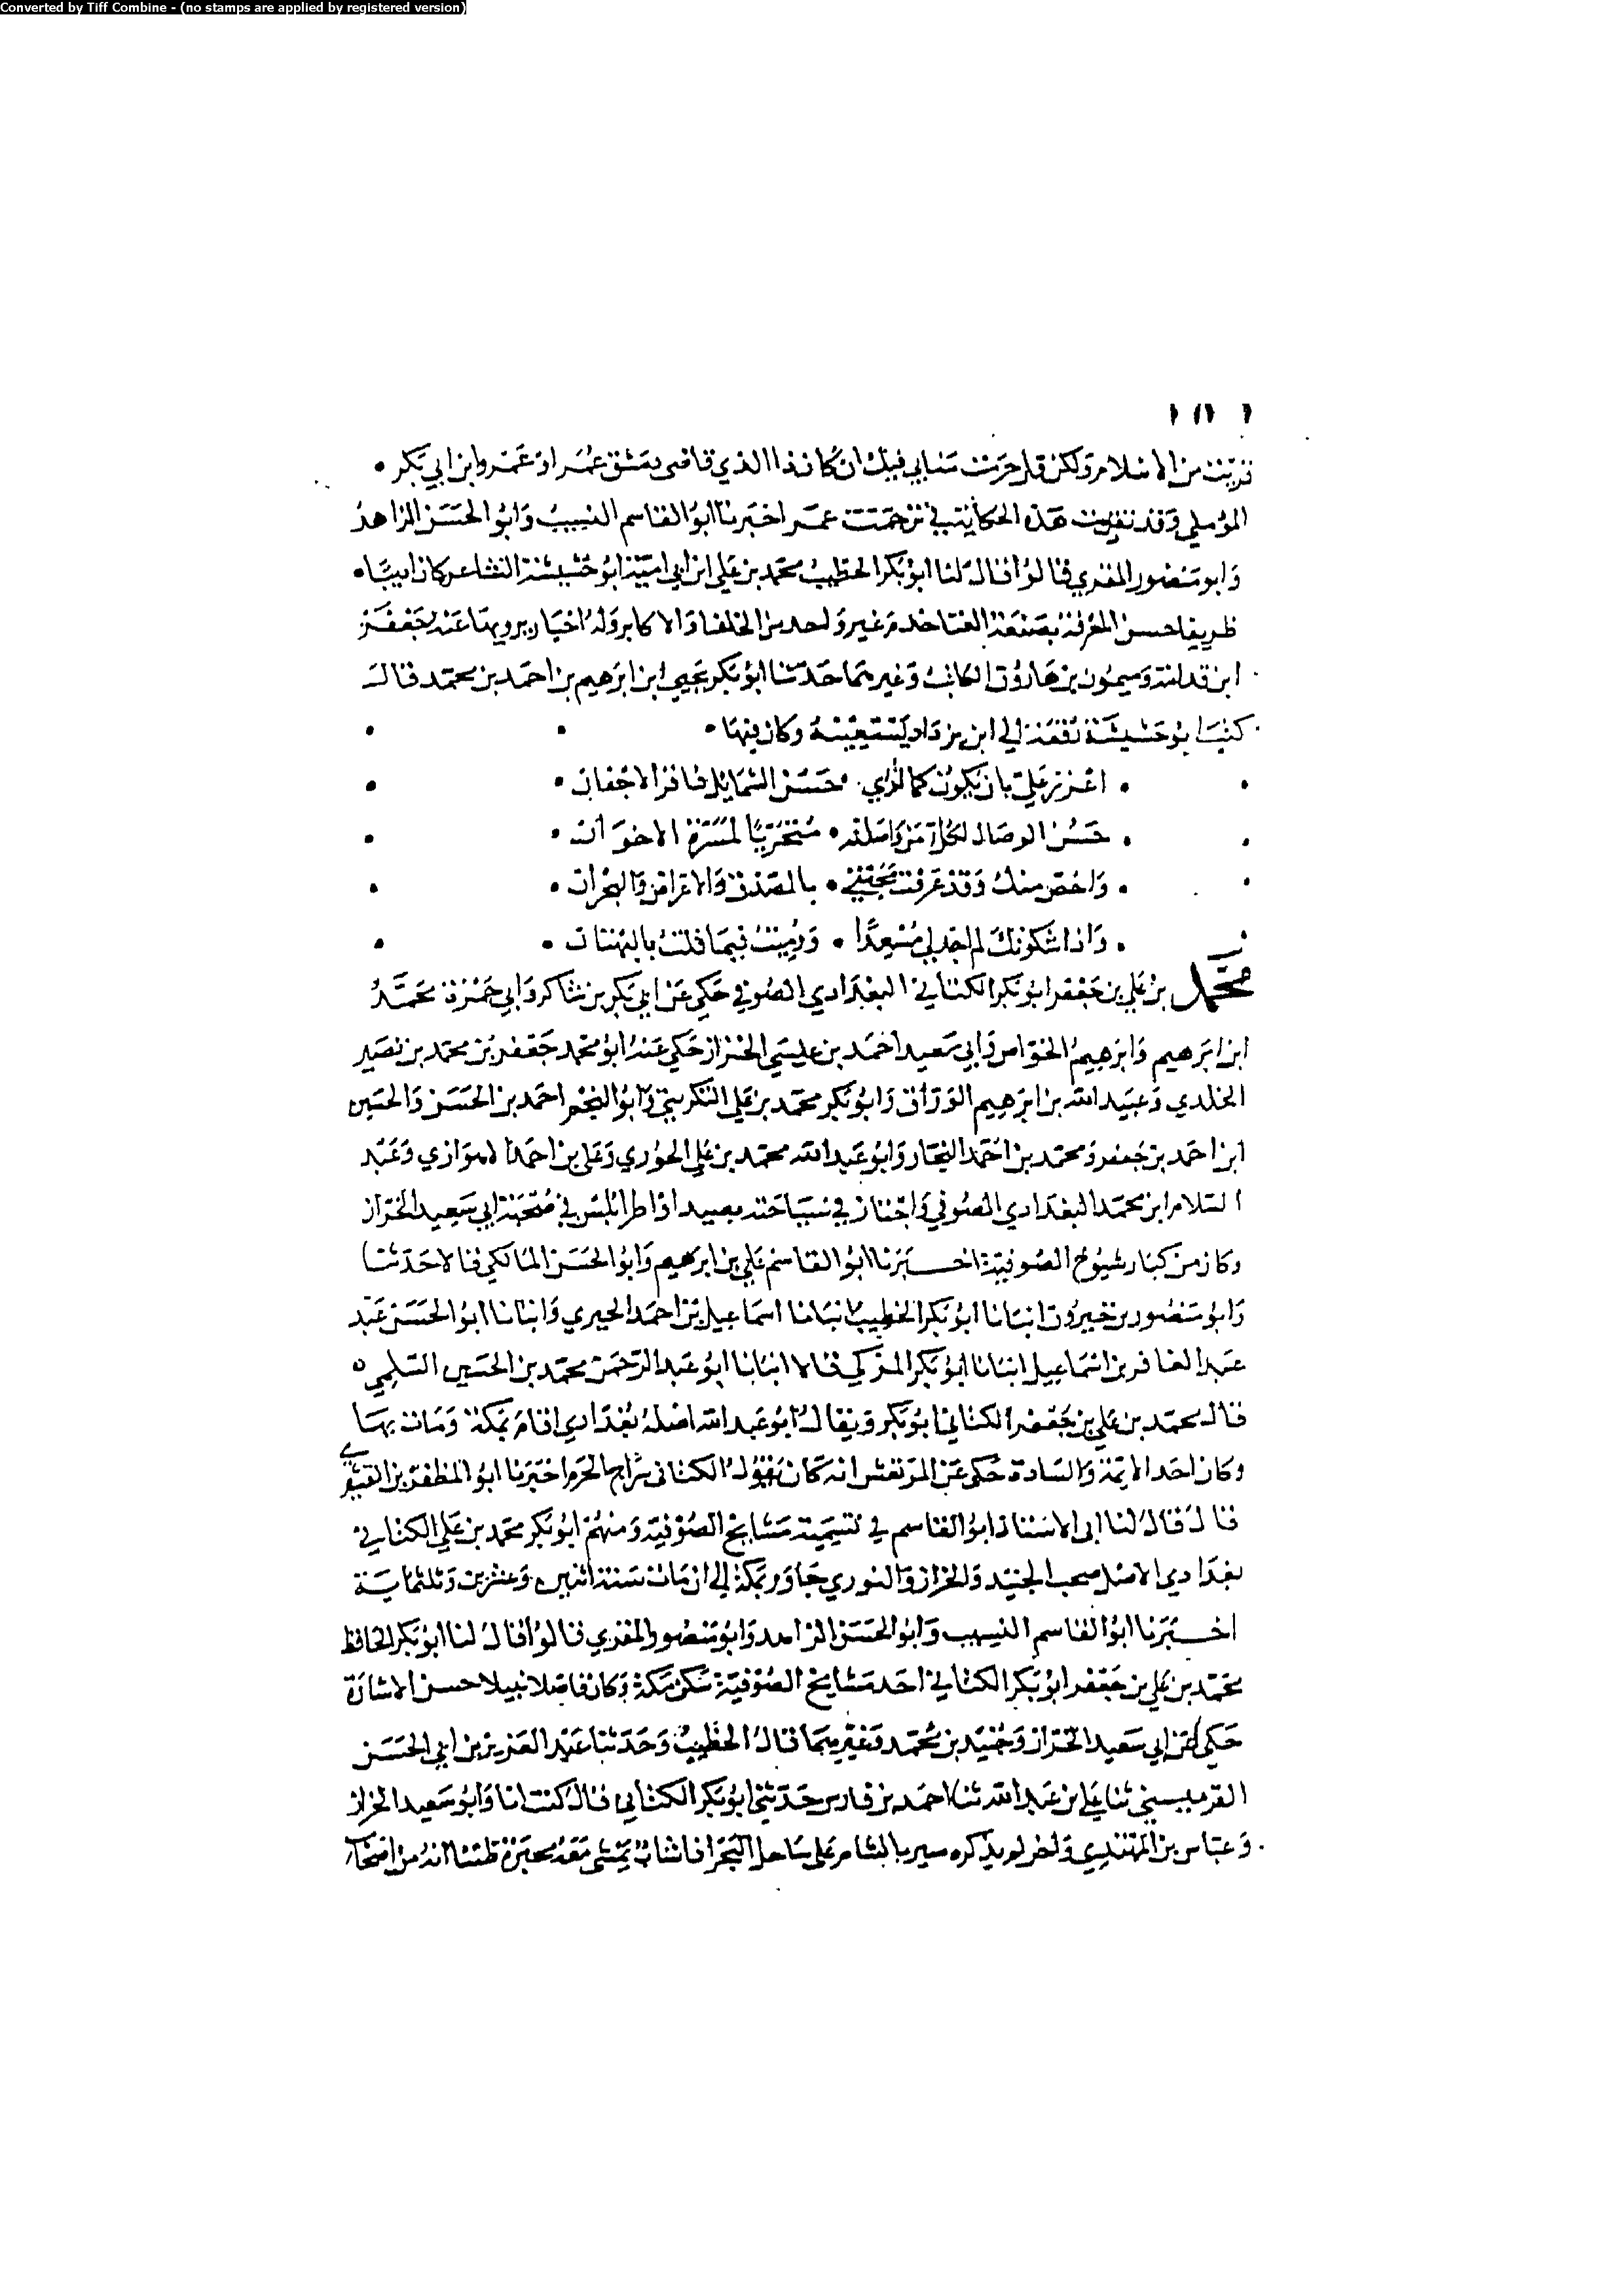 Converted by Tiff Combine - (no stamps are applied by registered version)
من الاسلام ولكن قد جرت منابي فيك ان كان ذا الذي قاضى دمشق عمر او عمرو ابن ابي بكر
المؤملي وقد تقدمت هذه الحكاية في ترجمت عمر اخبرنا ابو القاسم النسيب وابو الحسن الزاهد
وابو منصور المقري قالوا قال لنا ابو بكر الخطيب محمد بن علي ابن ابي امية ابو حشيشة الشاعر كان اديبا
ظريفا حسن المعرفة بصنعة الغنا خدم غير واحد من الخلفا والاكابر وله اخبار يرويها عنه جعفر
ابن قدامة وميمون بن هاروُن الكاتب وغيرهما حدثنا ابو بكر يحيى ابن ابرهيم بن احمد بن محمد قال
كتب ابو حشيشة رقعة الي ابن يزداد يستعينه وكان فيها
اعزز علي بان يكون كما اري حسن الشمايل فاتر الاجفان
حسن الوصال لكل من واصلته متحريا لمسرة الاخوان
واخص منك وقد عرفت محبتي بالصد والاعراض والهجران
واذا شكوتك لم اجد لي مسعدًا ورُميت فيما قلت بالبهتان
محمد بن علي بن جعفر ابو بكر الكتاني البغدادي الصوفي حكى عن ابي بكر بن شاكر وابي حمزة محمد
ابن ابرهيم وابرهيم الخواص وابي سعيد احمد بن عيسي الخراز حكي عنه ابو محمد جعفر بن محمد بن نصير
الخلدي وعبيد الله بن ابرهيم الوراق وابو بكر محمد بن علي التكريتي وابو النجم احمد بن الحسن والحسين
ابن احمد بن جعفر ومحمد بن احمد النجار وابو عبد الله محمد بن علي الحوري وعلي بن احمد الاهوازي وعبد
السلام ابن محمد البغدادي الصوفي واجتاز في سياحته بصيدا او اطرابلس في صحبة ابي سعيد الخراز
وكان من كبار شيوخ الصوفية اخبرنا ابو القاسم علي بن ابرهيم وابو الحسن المالكي قالا حدثنا
وابو منصور بن خيرون انبانا ابو بكر الخطيب انبانا اسماعيل بن احمد الحيري وانبانا ابو الحسن عبد
عبد الغافر بن اسماعيل انبانا ابو بكر المزكي قالا انبانا ابو عبد الرحمن محمد بن الحسين السلمي
قال محمد بن علي بن جعفر الكتاني ابو بكر ويقال ابو عبد الله اصله بغدادي اقام بمكة ومات بها
وكان احد الايمة والسادة حكى عن المرتعش انه كان يقول الكتاني سراج الحرم اخبرنا ابو المظفر بن القشيري
قال قال لنا ابي الاستاذ ابو القاسم في تسمية مشايخ الصوفية ومنهم ابو بكر محمد بن علي الكتاني
بغدادي الاصل صحب الجنيد والخراز والنوري جاور بمكة الي ان مات سنة اثنين وعشرين وثلثماية
اخبرنا ابو القاسم النسيب وابو الحسن الزاهد وابو منصور المقري قالوا قال لنا ابو بكر الحافظ
محمد بن علي بن جعفر ابو بكر الكتاني احد مشايخ الصوفية سكن مكة وكان فاضلا نبيلا حسن الاشارة
حكي عن ابي سعيد الخراز وجنيد بن محمد وغيرهما قال الخطيب وحدثنا عبد العزيز بن ابي الحسن
القرميسيني ثنا علي بن عبد الله ثنا احمد بن فارس حدثني ابو بكر الكتاني قال كنت انا وابو سعيد الخراز
وعباس بن المهتدي واخر لم يذكره نسير بالشام على ساحل البحر اذا شاب يمشى معه محبرة ظننا انه من اصحاب